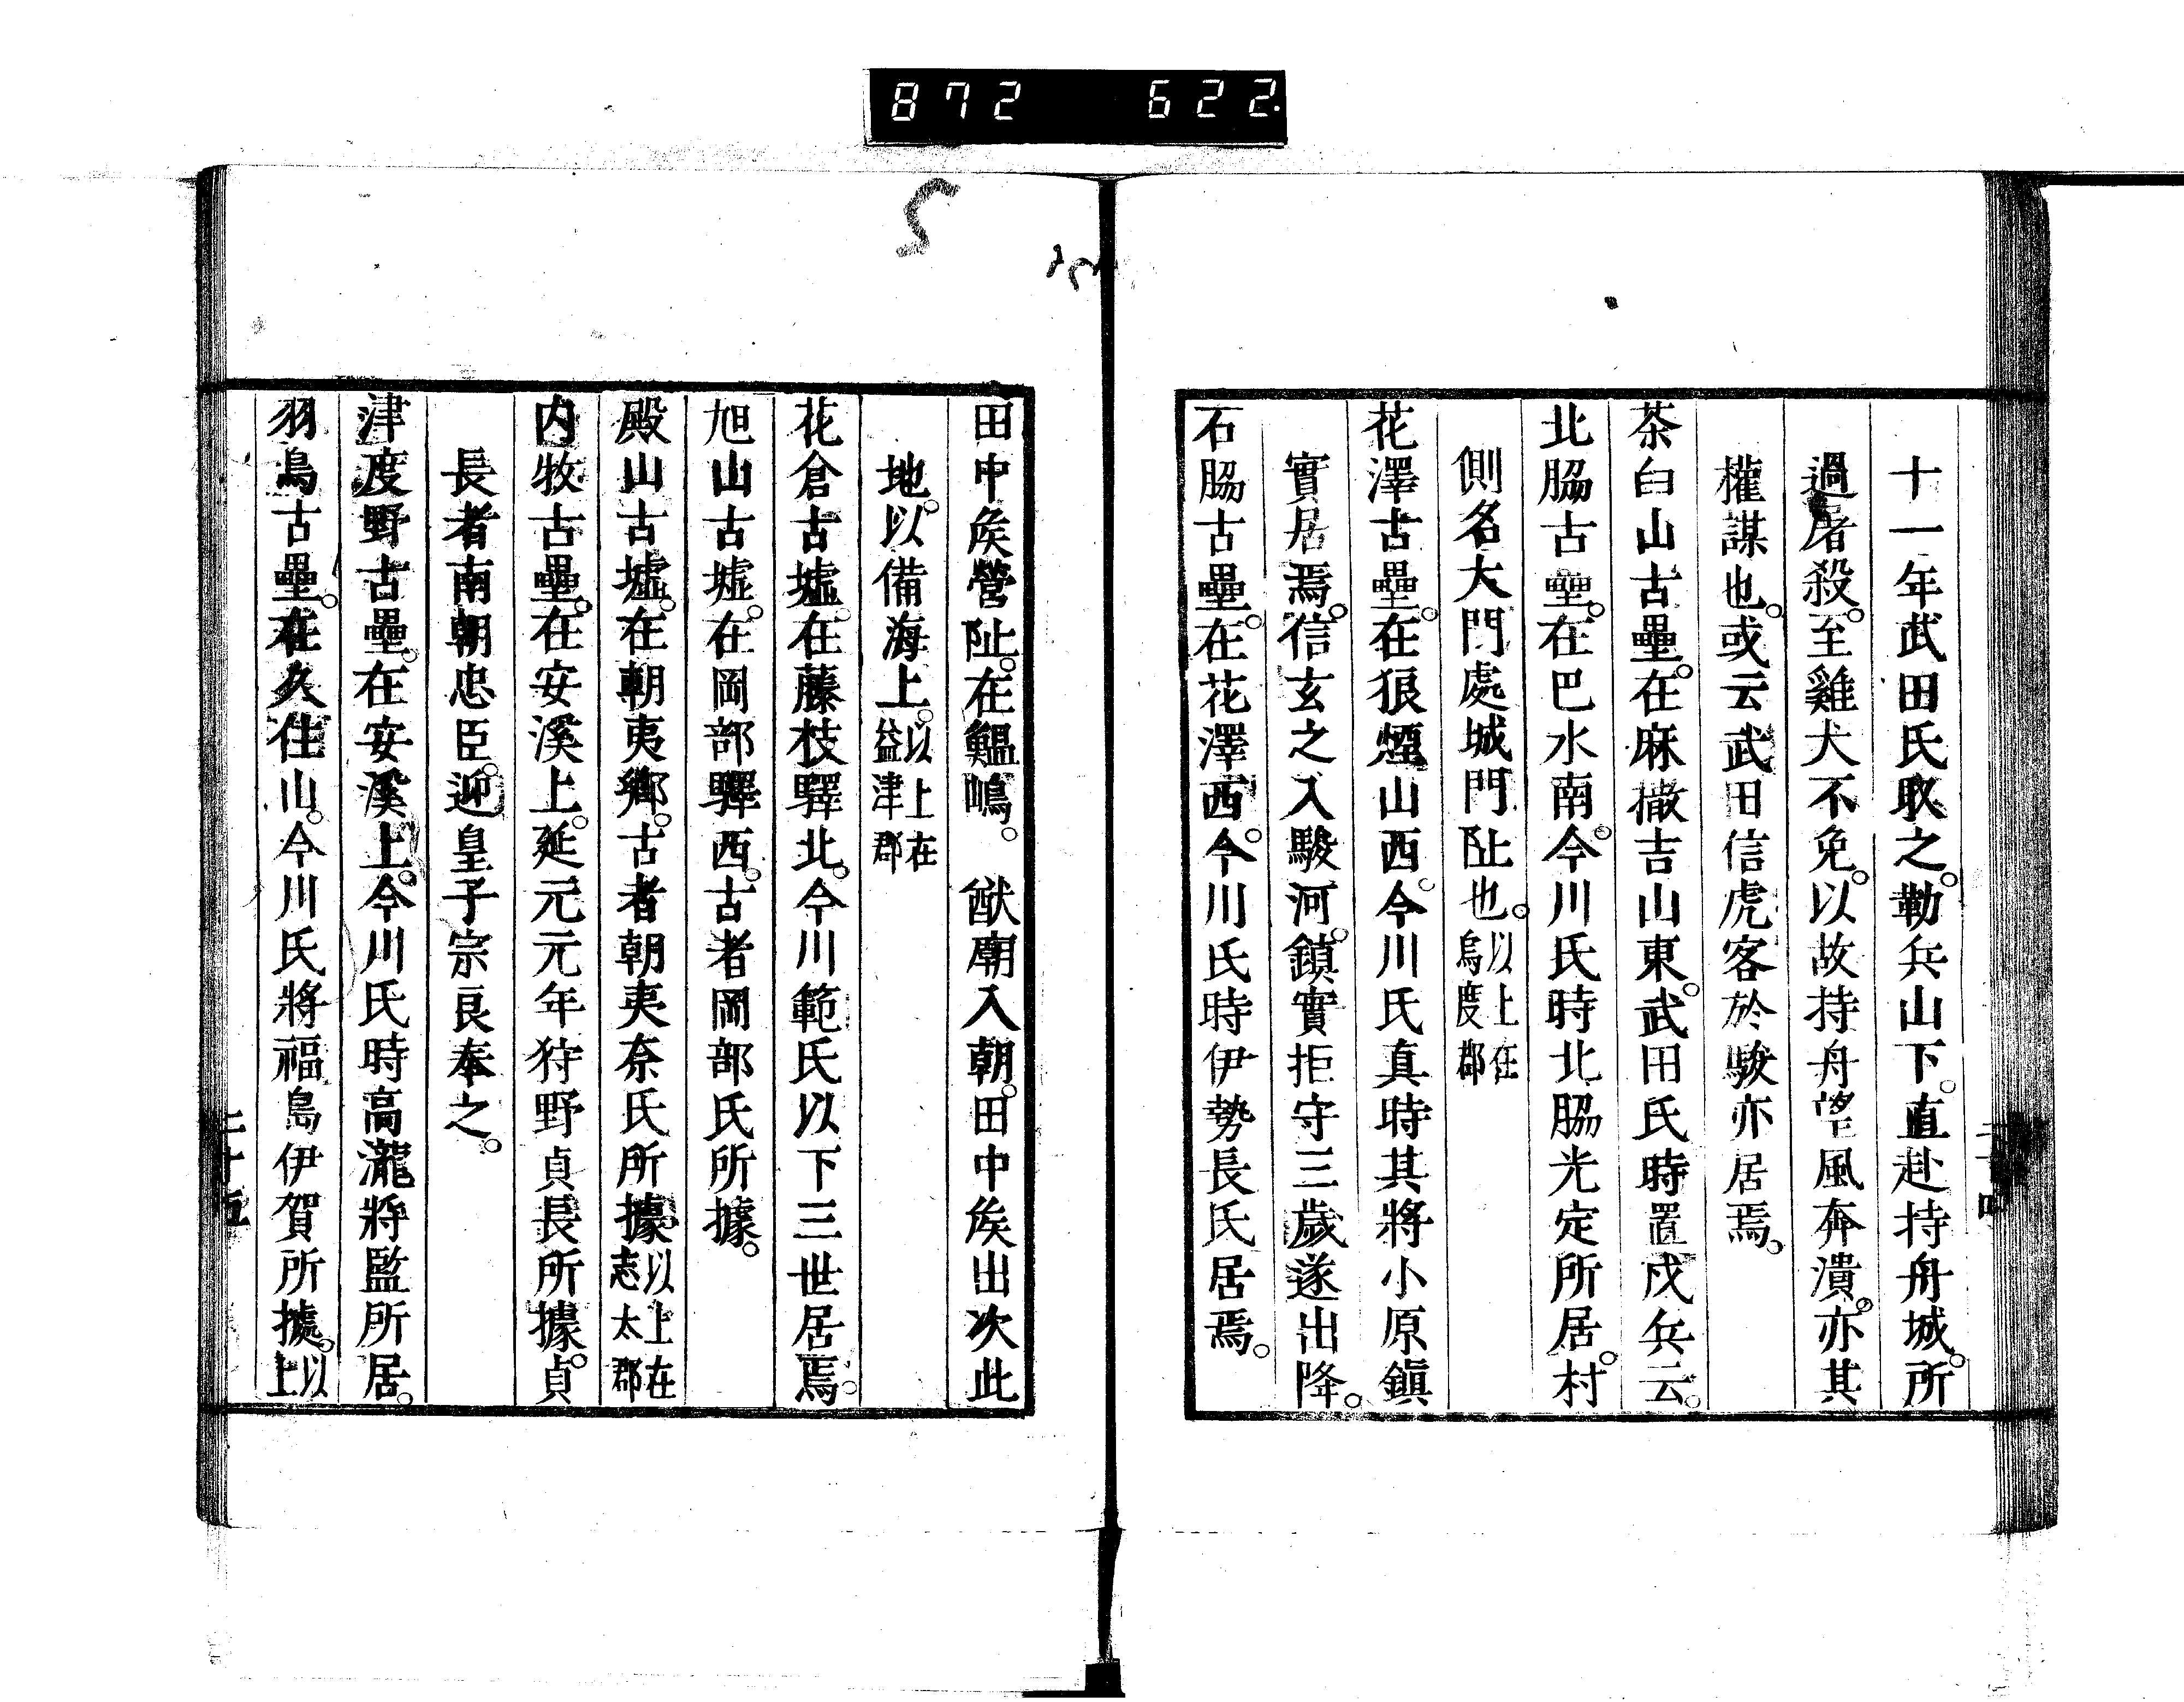 872 622.
十一年武田氏取之。勒兵山下。直赴持舟城。所
過屠殺。至雞犬不免。以故持舟望風奔潰。亦其
權謀也。或云武田信虎客於駿亦居焉。
茶臼山古壘。在麻撒吉山東。武田氏時置戍兵云。
北脇古壘。在巴水南。今川氏時北脇光定所居。村
側名大門處城門阯也。以上在烏度郡
花澤古壘。在狼煙山西。今川氏真時其將小原鎭
實居焉。信玄之入駿河。鎮實拒守三歲遂出降。
石脇古壘。在花澤西。今川氏時伊勢長氏居焉。
田中矦營阯。在鰛嶋。 猷廟入朝。田中矦出次此
地。以備海上。以上在益津郡
花倉古墟。在藤枝驛北。今川範氏以下三世居焉。
旭山古墟。在岡部驛西。古者岡部氏所據。
殿山古墟。在朝夷鄉。古者朝夷奈氏所據以上在志太郡
内牧古壘。在安溪上。延元元年狩野貞長所據。貞
長者南朝忠臣。迎皇子宗良奉之。
津度野古壘。在安溪上。今川氏時高瀧將監所居。
羽鳥古壘。在久住山。今川氏將福島伊賀所據。以上
二十五